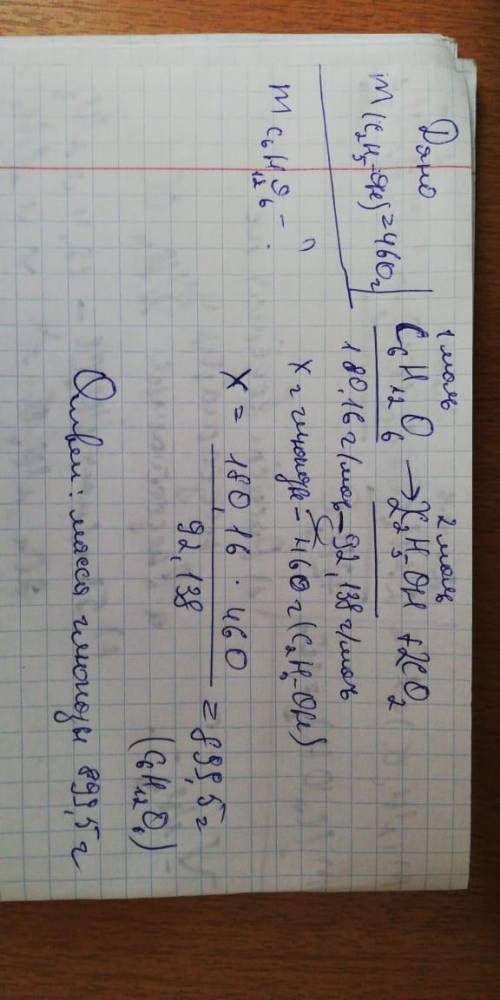 Дано
m(C₂H₅-OH)=460г
m C₆H₁₂O₆ - ?
1 моль 2 моль
C₆H₁₂O₆ → 2C₂H₅-OH + 2CO₂
180,16 г/моль – 92,138 г/моль
X г глюкозы – 460 г (C₂H₅-OH)
X = 180,16 · 460
92,138
= 899,5 г
(C₆H₁₂O₆)
Ответ: масса глюкозы 899,5 г